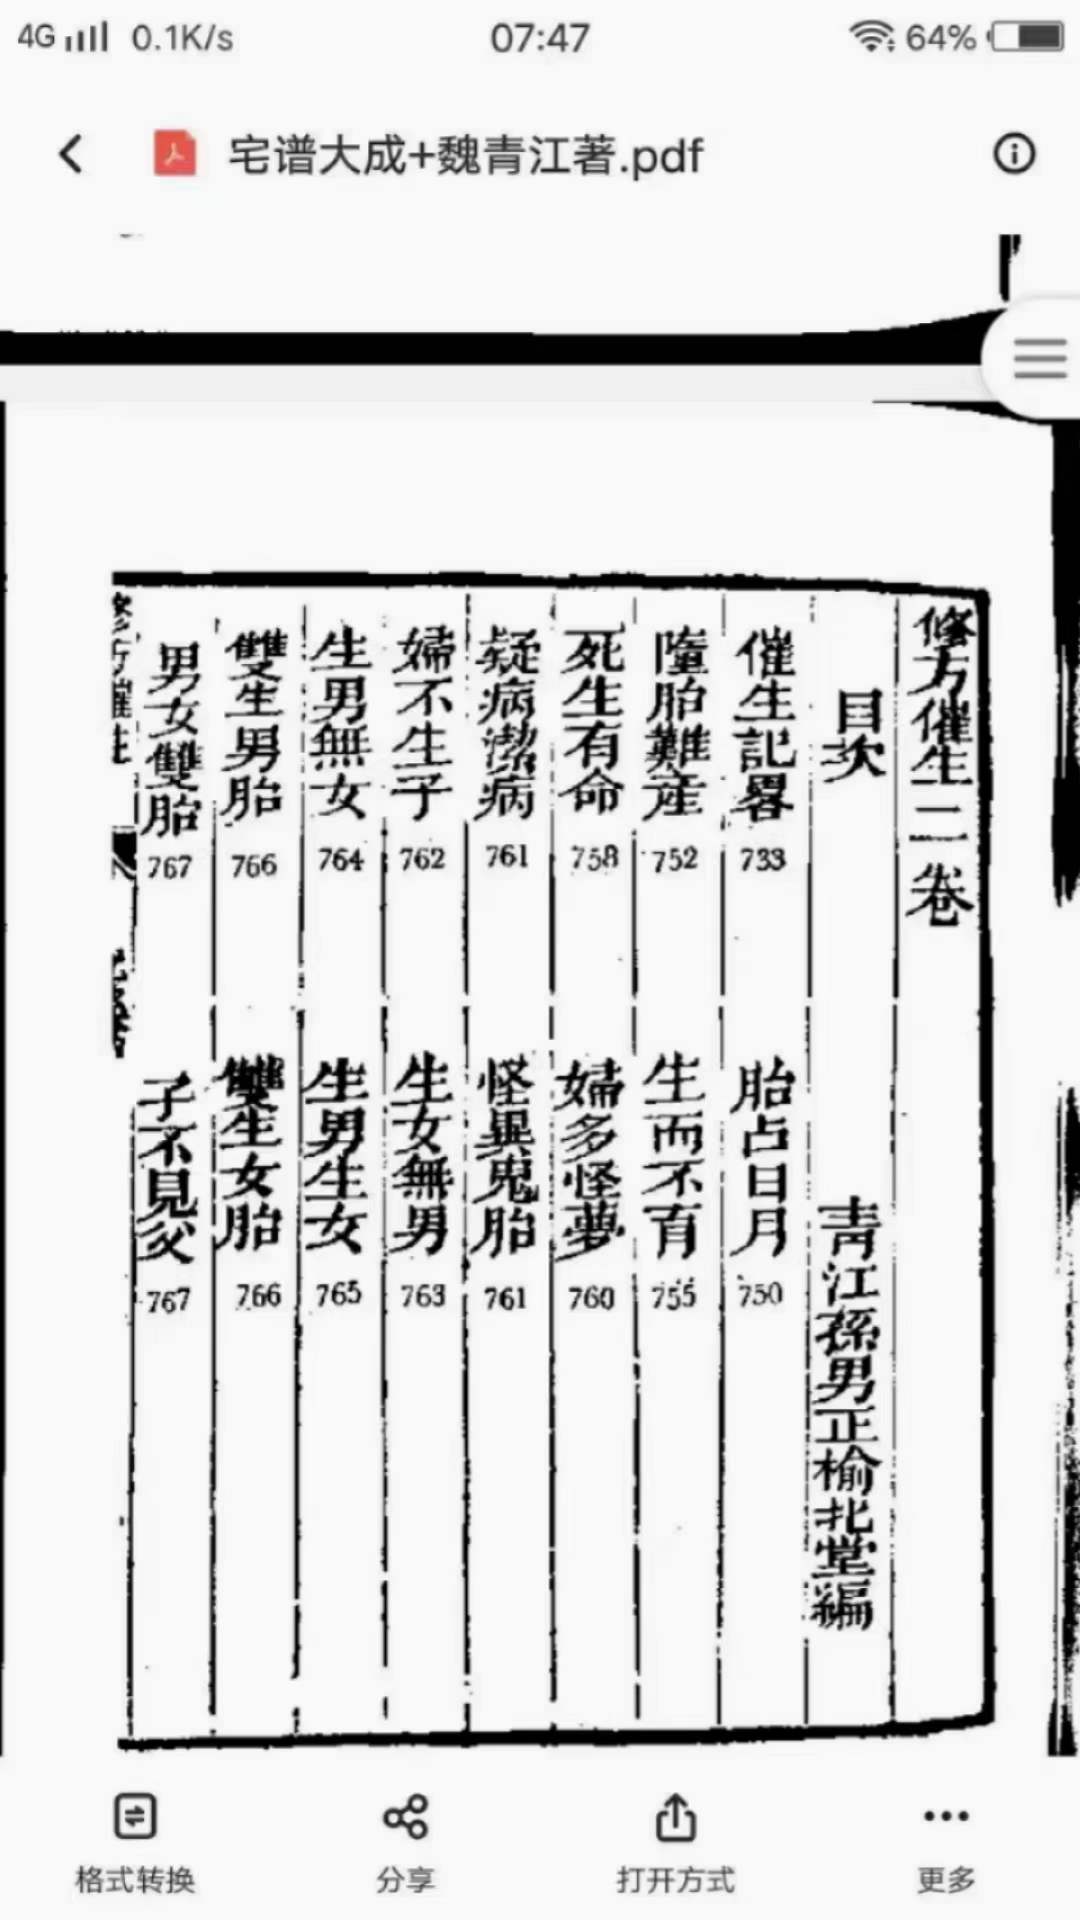 4G 0.1K/s 07:47 64%
宅谱大成+魏青江著.pdf
修方催生二卷
目次
青江孫男正榆北堂編
催生記畧 733
胎占日月 750
墮胎難産 752
生而不育 755
死生有命 758
婦多怪夢 760
疑病潔病 761
怪異鬼胎 761
婦不生子 762
生女無男 763
生男無女 764
生男生女 765
雙生男胎 766
雙生女胎 766
男女雙胎 767
子不見父 767
修方催生
格式转换
分享
打开方式
更多